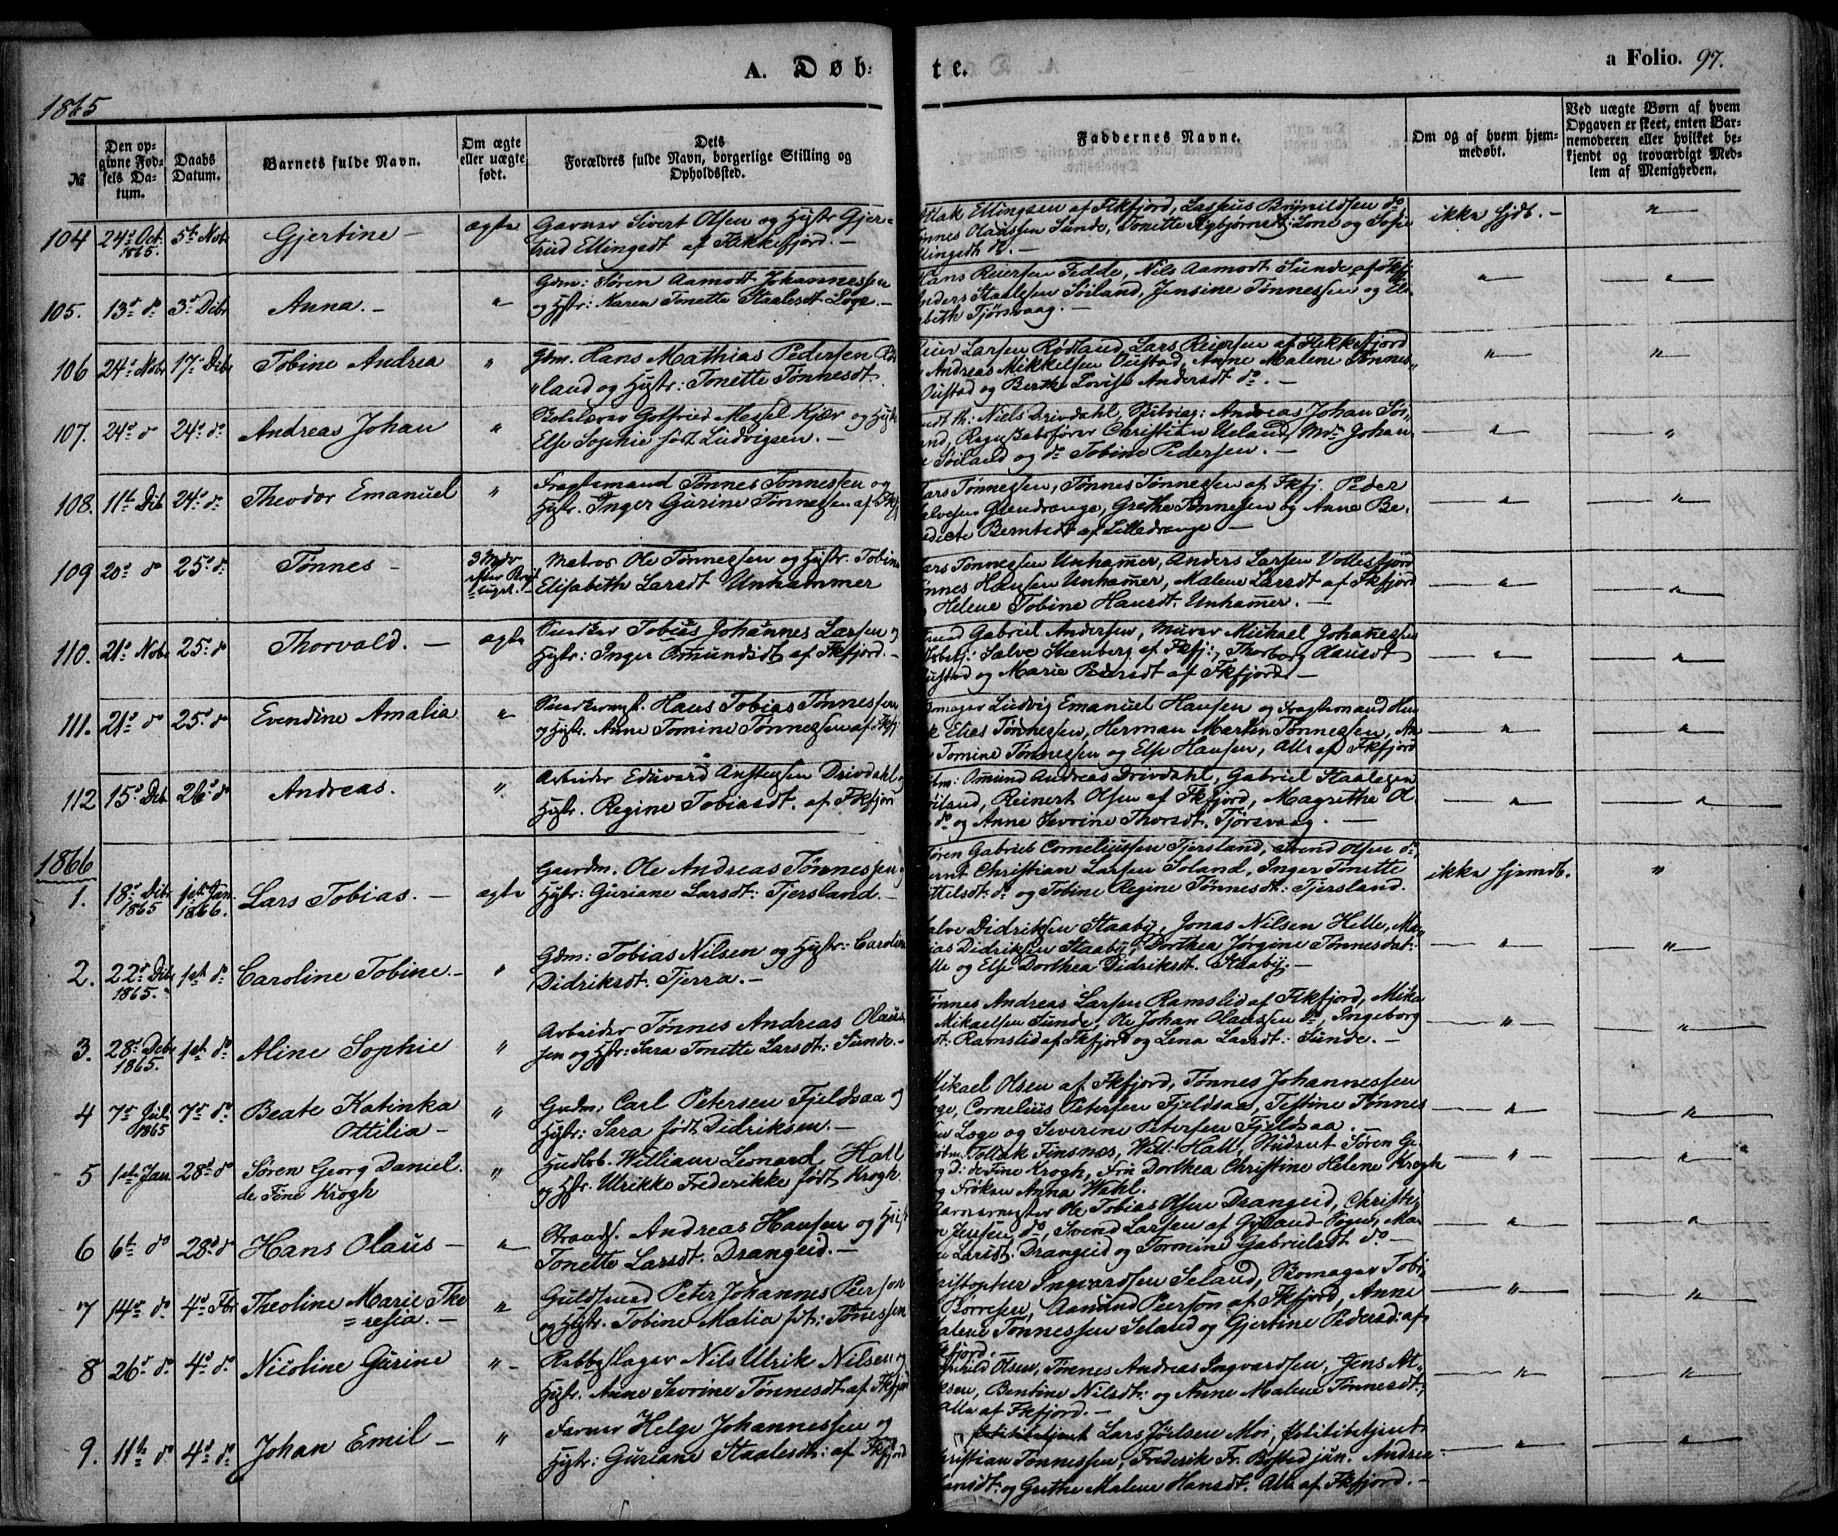 A. Døb-
te.
a Folio. 97.
1865
№
Den op-
givne Fød-
sels Da-
tum.
Daabs
Datum.
Barnets fulde Navn.
Om ægte
eller uægte
født.
Dets
Forældres fulde Navn, borgerlige Stilling og
Opholdssted.
Faddernes Navne.
Om og af hvem hjem-
medøbt.
Ved uægte Børn af hvem
Opgaven er skeet, enten Bar-
nemoderen eller hvilket be-
kjendt og troværdigt Med-
lem af Menigheden.
104 24de Oct. 1865. 5te Nob. Gjertine - ægte
Garver Sivert Olsen og Hstr Gjer-
trud Ellingsdt af Flekkefjord. -
Ellingsen af Fkfjord, Brynildsen do
Olaussen Sunde, Tonette Lone og Sofie
Ellingsdt do. -
ikke hjdb. - "
105. 13de do 3de Dcbr Anna. - "
Gdm: Søren Aamodt Johannessen
og Hstr: Karen Tonette Staalesdt Loge. -
Hans Reiersen Fedde, Nils Aamodt Sunde af Fkfj.
Anders Staalesen Søiland, Jensine Tønnessen og Eli-
sabeth Tjørsvaag. -
" "
106 24de Nobr 17de Dcbr Tobine Andrea "
Gdm. Hans Mathias Pedersen Rød-
land og Hstr: Tonette Tønnesdt.
Larsen Rødland, Lars Reiersen af Flekkefjord
Andreas Mikkelsen Oustad, Anne Malene Tønnes-
Oustad og Berthe Lovise Andersdt do. -
" "
107. 24de do 24de do Andreas Johan "
Gotfried Messel Kjær og Hstr
Else Sophie født Ludvigsen. -
Niels Drivdahl, Andreas Johan Søi-
land, Christian Ueland, Johan
Søiland og do Tobine Pedersen. -
" "
108. 11te Dcb 24de do Theodor Emanuel "
Fragtemand Tønnes Tønnessen og
Hstr. Inger Gurine Tønnessen af Fkfj
Lars Tønnessen, Tønnes Tønnessen af Fkfj. Peder
Grethe Tønnessen og Anne Be-
Berntsdt af Lilledrange -
" "
109 20de do 25de do Tønnes - 3 Mdr
Matros Ole Tønnessen og Hstr: Tobine
Elisabeth Larsdt Unhammer
Lars Tønnessen Unhamer, Anders Larsen Vollesfjord
Tønnes Hansen Unhamer, Malene Larsdt af Fkfjord
Helene Tobine Hansdt. Unhamer. -
" "
110. 21de Nobr 25de do Thorvald. - ægte
Snedker Tobias Johannes Larsen og
Hstr: Inger Omundsdt af Fkfjord. -
Gabriel Andersen, Murer Michael Johannessen
Salve Stenberg af Fkfj:, Thorborg Olausdt
og Marie Pedersdt af Fkfjord. -
" "
111. 21de do 25de do Evendine Amalia "
Hans Tobias Tønnessen
og Hstr. Anne Tomine Tønnessen af Fkfj
Ludvig Emanuel Hansen og Fragtemand Hen-
Elias Tønnessen, Herman Martin Tønnessen, An-
Tomine Tønnessen og Else Hansen, Alle af Fkfjord
" "
112 15de Dcb. 26de do Andreas. "
Arbeider Edevard Drivdahl og
Hstr. Regine Tobiasdt. af Fkfjord
Omund Andreas Drivdahl, Gabriel Staalesen
Søiland, Reinert Olsen af Fkfjord, Magrethe Ol-
do og Anne Severine Thorsdt. Tjørsvaag. -
" "
1866
1. 18de Dcbr 1865 1ste Jan. 1866. Lars Tobias. - ægte
Gaardm. Ole Andreas Tønnessen og
Hstr: Guriane Larsdt: Tjersland. -
Søren Gabriel Corneliussen Tjersland, Svend Olsen do,
Bernt Christian Larsen Soland, Inger Tonette
do og Tobine Regine Tønnesdt: Tjersland.
ikke hjemdb. "
2. 22de Dcbr 1865. 1ste do Caroline Tobine. - "
Gdm: Tobias Nilsen og Hstr: Caroline
Didriksdt. Tjerra. -
Salve Didriksen Staaby, Jonas Nilsen Helle, Ma-
Didriksen Staaby, Dorthea Jørgine Tønnesdat:
Helle og Else Dorthea Didriksdt. Staaby. -
" "
3. 28de Dcbr 1865. 1ste do Aline Sophie "
Arbeider Tønnes Andreas Olaus-
sen og Hstr: Sara Tonette Larsdt: Sunde. -
Tønnes Andreas Larsen Ramslid af Fkfjord, Mika-
Mikaelsen Sunde, Ole Johan Olaussen do, Ingeborg
Ramslid af Fkfjord og Lena Larsdt: Sunde. -
" "
4 7de Jul. 1865 7de do Beate Katinka
Ottilia - "
Gdm: Carl Petersen Fjeldsaa og
Hstr: Sara født Didriksen. -
Mikael Olsen af Fkfjord, Tønnes Johannessen
Loge, Cornelius Petersen Fjeldsaa, Tønnes-
Loge og Severine Petersen Fjeldsaa. -
" "
5 1ste Jan 28de do Søren Georg Daniel
de Fine Krogh "
William Leonard Hall
og Hstr. Ulrikke Frederikke født Krogh
Tollak Finsnæs, Will: Hall, Student Søren Ge-
D: de Fine Krogh, Fru Dorthea Christine Helene Krogh
og Frøken Anna Wahl.
" "
6 6te do 28de do Hans Olaus - "
Strands. Andreas Hansen og Hstr
Tonette Larsdt. Drangeid. -
Garvermester Ole Tobias Olsen Drangeid, Christi-
Jensen do, Svend Larsen af Gyland Sogn, Ma-
Larsdt. Drangeid og Tormine Gabrielsdt do -
" "
7 14de do 4de Fbr Theoline Marie The
= resia. - "
Guldsmed Peter Johannes Peerson
og Hstr. Tobine Malia føt: Tønnessen
Christopher Ingvardsen Seland, Skomager Tobi-
Børresen, Aanund Peerson af Fkfjord, Anne
Malene Tønnessen Seland og Gjertine Pedersd: af
Fkfjord. -
" "
8 26de do 4de do Nicoline Gurine " -
Rebbeslager Nils Ulrik Nilsen og
Hstr. Anne Severine Tønnesdt af Fkfjord
Olsen, Tønnes Andreas Ingvardsen, Jens At-
Bentine Nilsdt: og Anne Malene Tønnesdt:,
alle af Fkfjord. -
" "
9. 11te do 4de do Johan Emil - "
Farver Helge Johannessen og
Hstr: Guriane Staalesdt: af Fkfjord
Lars Jøelsen Moi, Politibetjent
Christian Tønnessen, Frederik Fr. Bøsted jun. Andrea
Hansdt: og Grethe Malene Hansdt. Alle af Fkfjord. -
" "